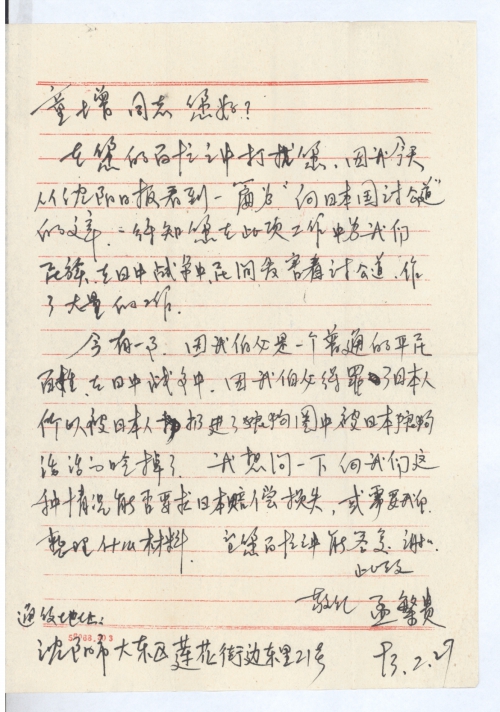 童增同志您好?
在您的百忙之中打扰您,因我今天
从《沈阳日报》看到一篇为"向日本国讨公道"
的文章,得知您在此项工作中为我们
民族,在日中战争中民间受害者讨公道,作
了大量的工作.
今有一事,因我伯父是一个普通的平民
百姓,在日中战争中,因我伯父得罪了日本人
所以被日本人扔进了狼狗圈中被日本狼狗
活活的吃掉了 我想问一下向我们这
种情况能否要求日本赔偿损失,或需要我们
整理什么材料. 望您百忙之中能答复.谢谢.
此致
敬礼 孟繁贵
通信地址:
沈阳市大东区莲花街边东里21号 93.2.27